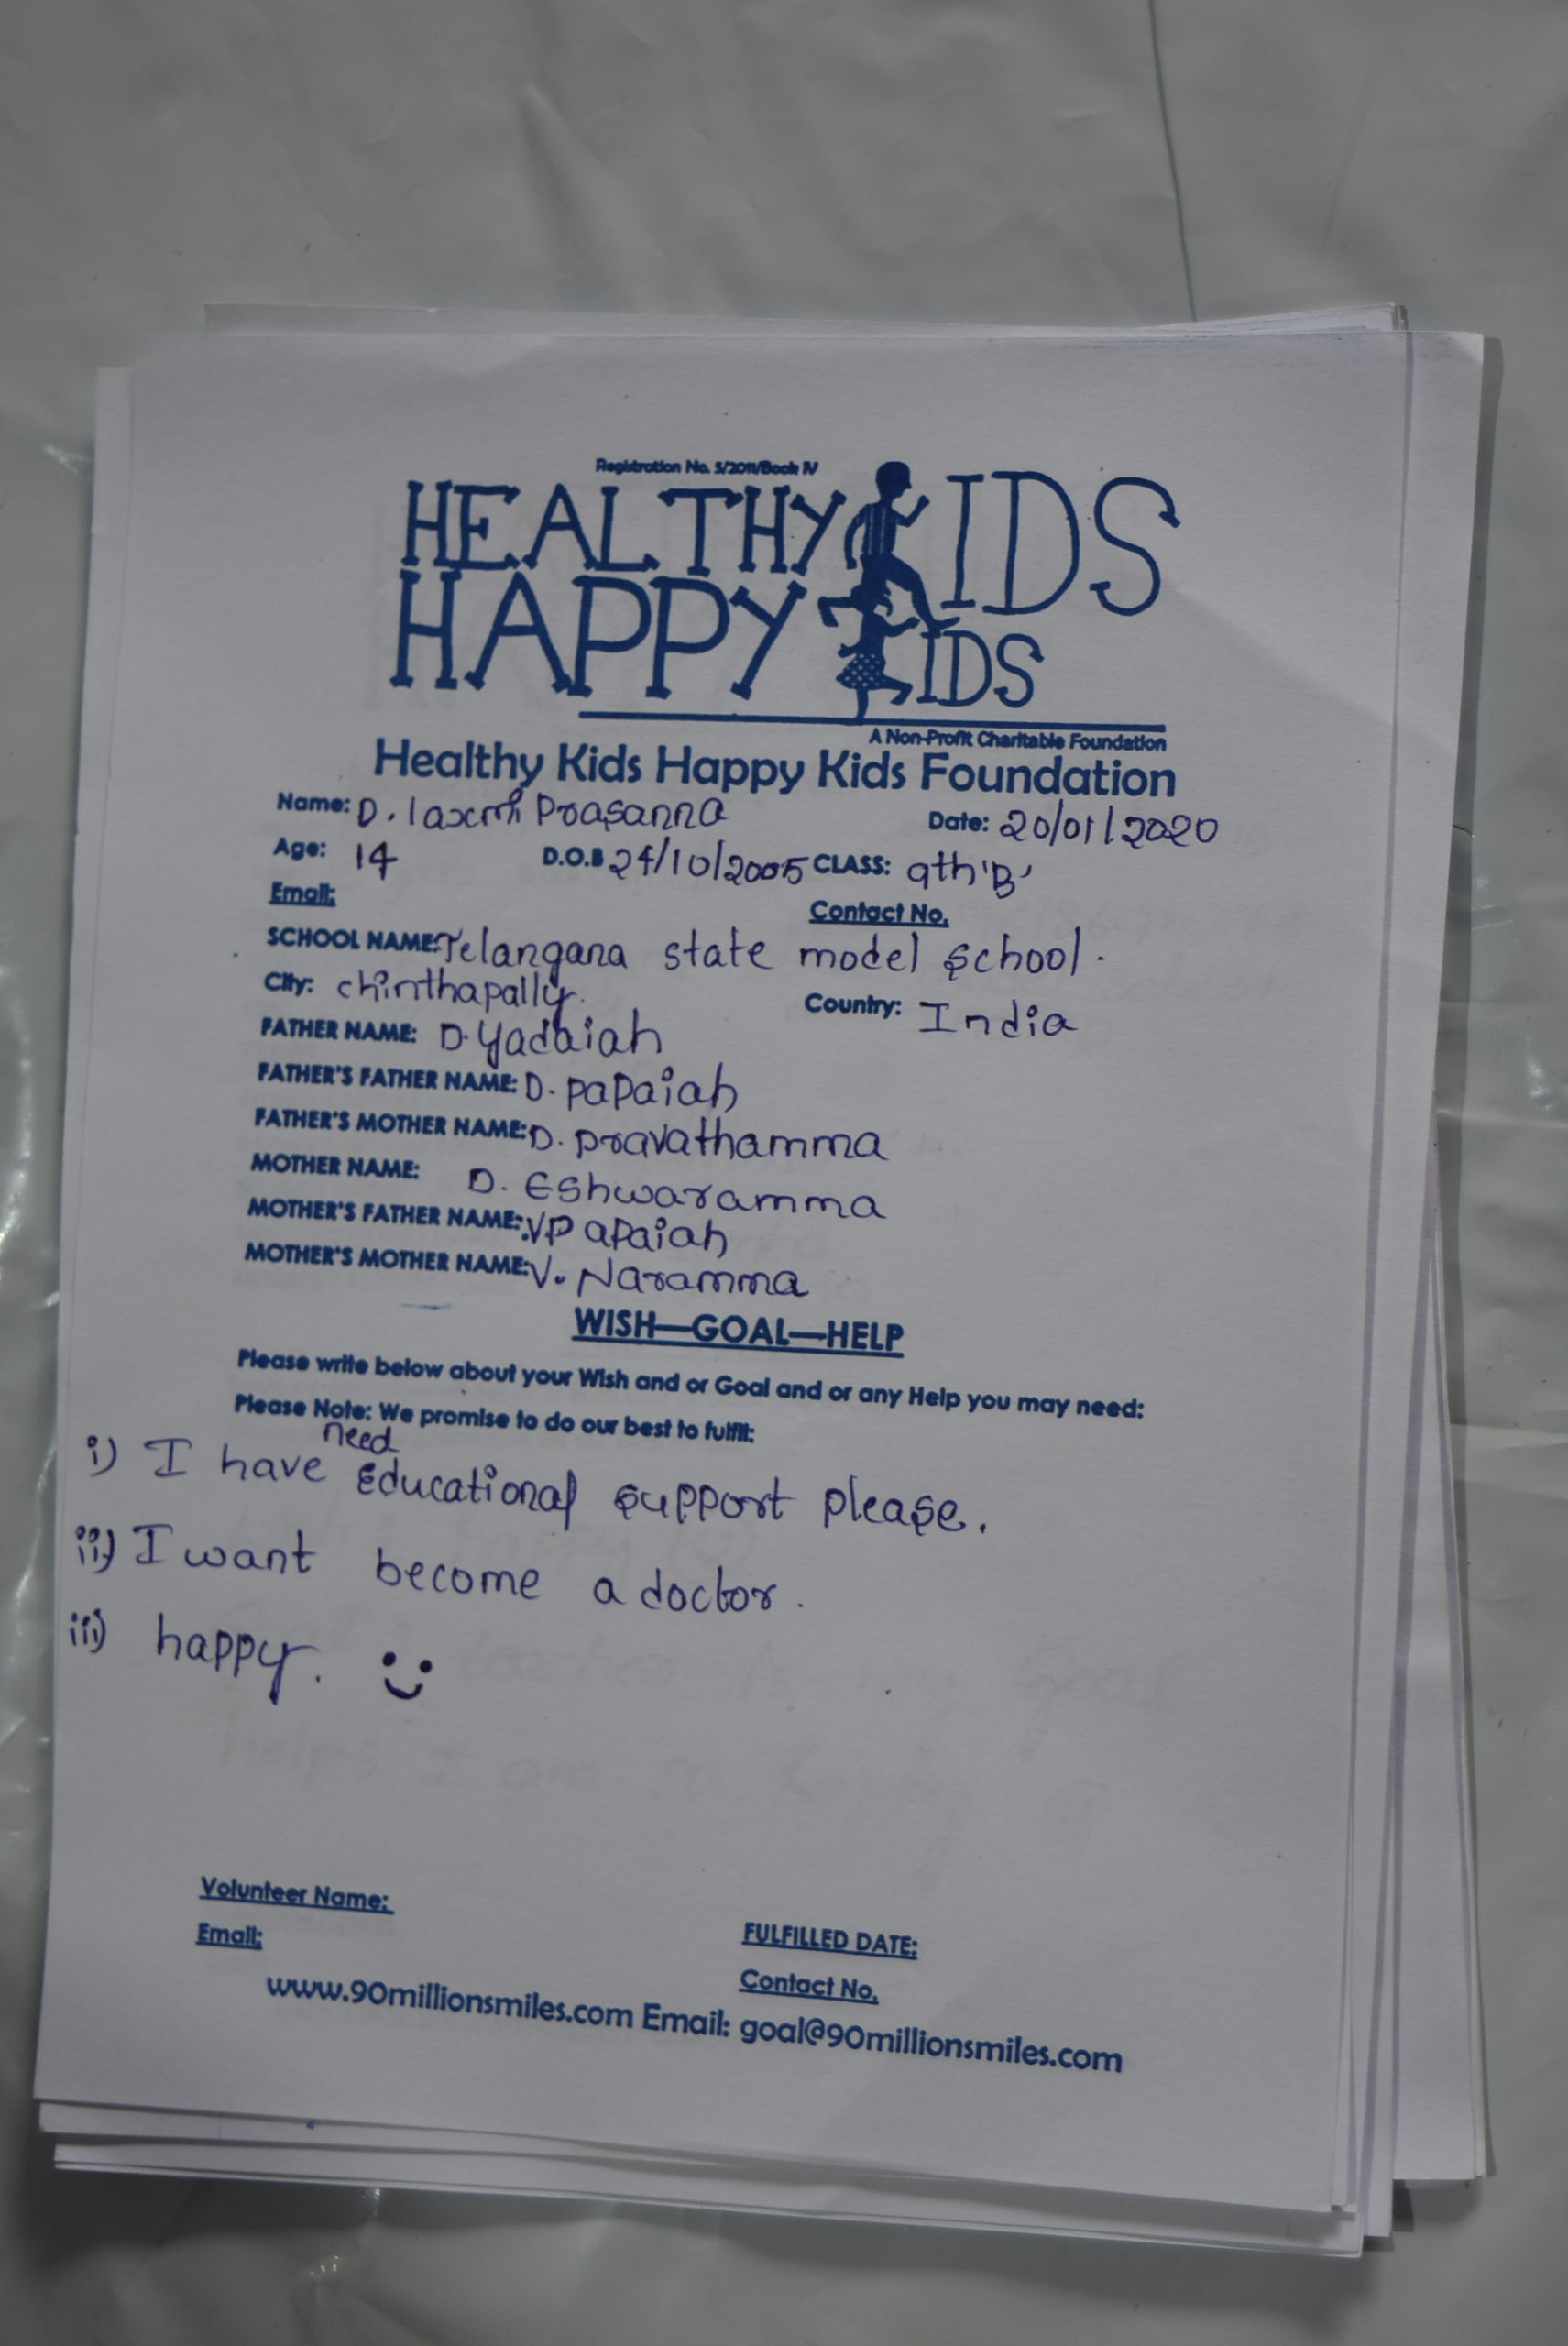 Registration No. 5/2011/Book IV
HEALTHY KIDS
HAPPY KIDS
A Non-Profit Charitable Foundation
Healthy Kids Happy Kids Foundation
Name: D. laxmi Prasanna Date: 20/01/2020
Age: 14 D.O.B 24/10/2005 CLASS: 9th 'B'
Email: Contact No.
SCHOOL NAME: Telangana state model school.
City: chinthapally. Country: India
FATHER NAME: D. Yadaiah
FATHER'S FATHER NAME: D. papaiah
FATHER'S MOTHER NAME: D. pravathamma
MOTHER NAME: D. Eshwaramma
MOTHER'S FATHER NAME: V.P apaiah
MOTHER'S MOTHER NAME: V. Naramma
WISH—GOAL—HELP
Please write below about your Wish and or Goal and or any Help you may need:
Please Note: We promise to do our best to fulfil:
need
i) I have Educational support please.
ii) I want become a doctor.
iii) happy.
Volunteer Name:
Email: FULFILLED DATE:
Contact No.
www.90millionsmiles.com Email: goal@90millionsmiles.com